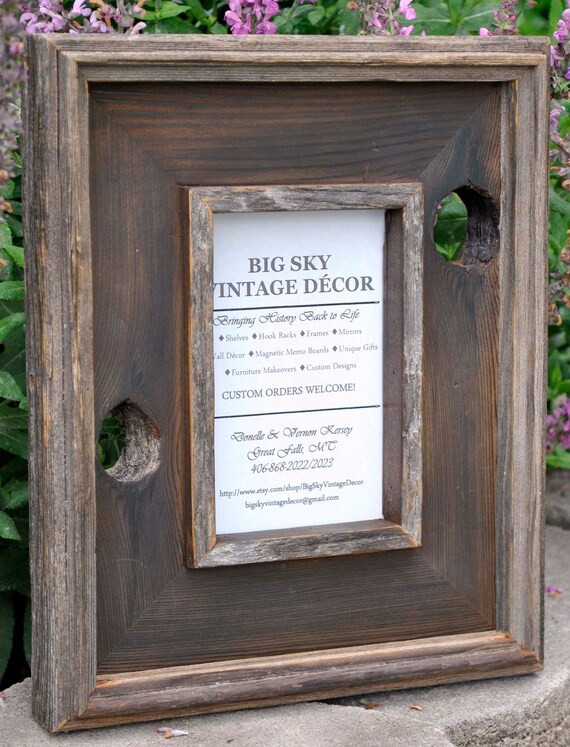 BIG SKY
VINTAGE DÉCOR
Bringing History Back to Life
♦Shelves ♦Hook Racks ♦Frames ♦Mirrors
Wall Décor ♦Magnetic Memo Boards ♦Unique Gifts
♦Furniture Makeovers ♦Custom Designs
CUSTOM ORDERS WELCOME!
Donelle & Vernon Kersey
Great Falls, MT
406-868-2022/2023
http://www.etsy.com/shop/BigSkyVintageDecor
bigskyvintagedecor@gmail.com